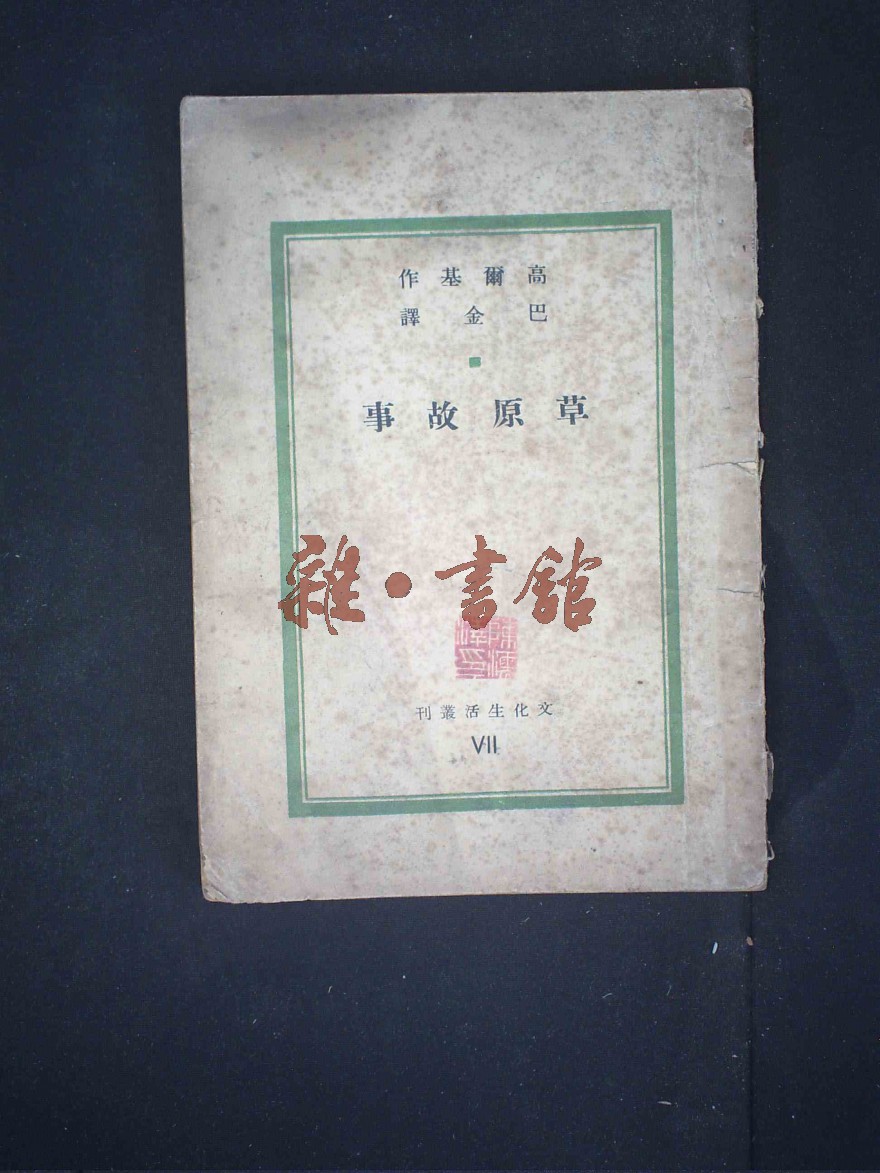 高爾基作
巴金譯
草原故事
雜·書館
文化生活叢刊
VII